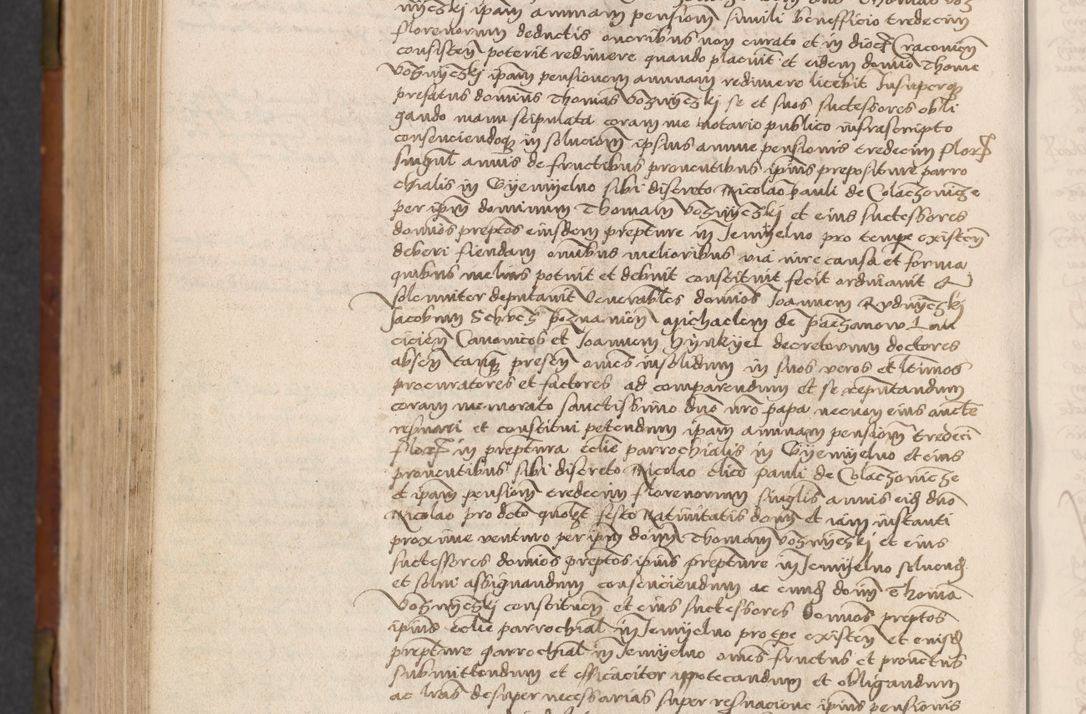 nyeskj ipam annuam pension simili beneficio tredecim
florenorum deductis oneribus non curato et in dioc Craconien
consisten poterit redimere quando placuit et eidem domio Thome
Voznyczskj ipam pensionem annuam redimere licebit Insuperqz
prefatus dominus Thomas Voznyczskj se et suos successores obli
gando manu stipulata coram me notario publico infrascripto
consenciendoqz in solucion ipsius annue pensionis tredecim flor
singul annis de fructibus proventibus ipius prepositure parro
chialis in Vyemyelno sibi discreto Nicolao Pauli de Colaczonicze
per ipm dominum Thomam Voznyczskj et eius successores
domios preptos eiusdem prepture in Jemyelno pro tempe existen
deberi fiendam omibus melioribus via iure causa et forma
quibus melius potuit et debuit constituit fecit ordinavit et
solenniter deputavit Venerabiles domios Joannem Rydnyczskj
Jacobum posnanien Michaelem de Paczanow
cicien Canonicos et Joannem Hynkyel decretorum doctores
absen tanqz presen omes insolidum in suos veros et ltimos
procuratores et factores ad comparendum et se reputandum
coram memorato sanctissimo dno nro papa necnon eius aucte
reservari et constitui petendum ipam annuam pension tredeci
flor in preptura eclie parrochialis in Vyemyelno et eius
proventibus sibi discreto Nicolao clico Pauli de Colaczonicze
et ipam pension tredecim florenorum singlis annis eid dno
Nicolao pro dcto quolzt festo Nativitatis domi et iam instanti
proxime venturo per ipm domi Thomam Voznyczskj et eius
successores domios preptos ipius prepture in Jemyelno solvend
et solvi assignandum consenciendum ac eund domi Thoma
Voznyczskj constituen et eius successores Domios preptos
ipius eclie parrochial in Jemyelno pro tpe existen et eiusd
prepture parrochial in Jemyelno omes fructus et proventus
submittendum et efficaciter ippotecandum et obligandum
ac lras desuper necessarias super reservacione ipius pensionis